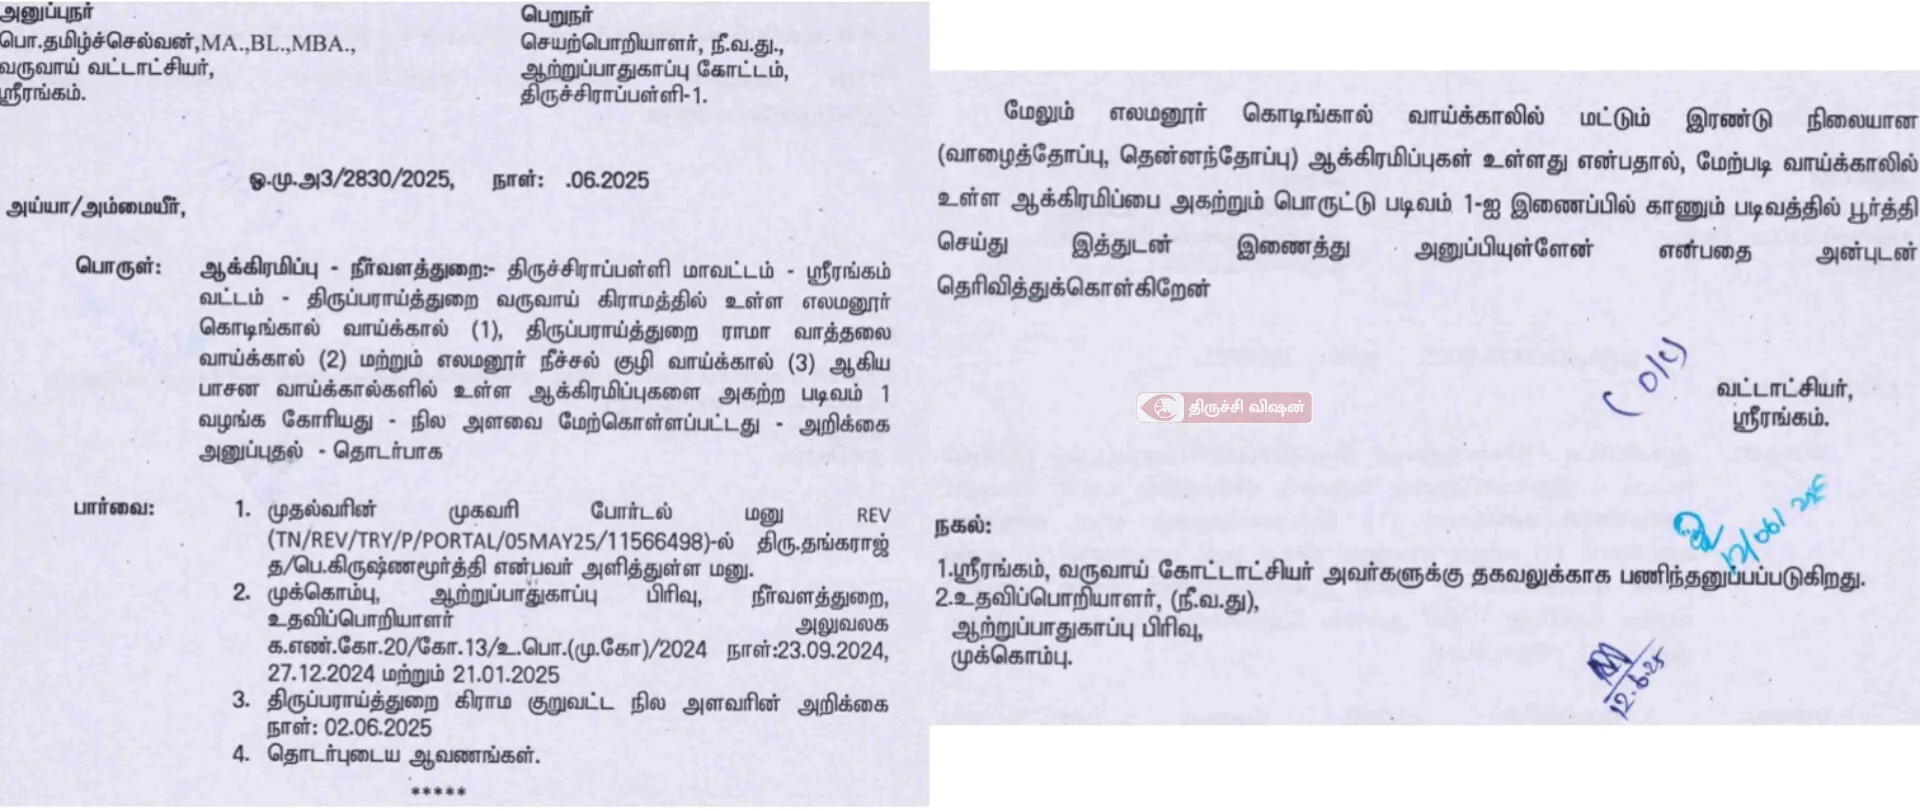 அனுப்புநர்
பொ.தமிழ்ச்செல்வன்,MA.,BL.,MBA.,
வருவாய் வட்டாட்சியர்,
ஸ்ரீரங்கம்.
பெறுநர்
செயற்பொறியாளர், நீ.வ.து.,
ஆற்றுப்பாதுகாப்பு கோட்டம்,
திருச்சிராப்பள்ளி-1.
ஓ.மு.அ3/2830/2025, நாள்: .06.2025
அய்யா/அம்மையீர்,
பொருள்: ஆக்கிரமிப்பு - நீர்வளத்துறை:- திருச்சிராப்பள்ளி மாவட்டம் - ஸ்ரீரங்கம்
வட்டம் - திருப்பராய்த்துறை வருவாய் கிராமத்தில் உள்ள எலமனூர்
கொடிங்கால் வாய்க்கால் (1), திருப்பராய்த்துறை ராமா வாத்தலை
வாய்க்கால் (2) மற்றும் எலமனூர் நீச்சல் குழி வாய்க்கால் (3) ஆகிய
பாசன வாய்க்கால்களில் உள்ள ஆக்கிரமிப்புகளை அகற்ற படிவம் 1
வழங்க கோரியது - நில அளவை மேற்கொள்ளப்பட்டது - அறிக்கை
அனுப்புதல் - தொடர்பாக
பார்வை: 1. முதல்வரின் முகவரி போர்டல் மனு REV
(TN/REV/TRY/P/PORTAL/05MAY25/11566498)-ல் திரு.தங்கராஜ்
த/பெ.கிருஷ்ணமூர்த்தி என்பவர் அளித்துள்ள மனு.
2. முக்கொம்பு, ஆற்றுப்பாதுகாப்பு பிரிவு, நீர்வளத்துறை,
உதவிப்பொறியாளர் அலுவலக
க.எண்.கோ.20/கோ.13/உ.பொ.(மு.கோ)/2024 நாள்:23.09.2024,
27.12.2024 மற்றும் 21.01.2025
3. திருப்பராய்த்துறை கிராம குறுவட்ட நில அளவரின் அறிக்கை
நாள்: 02.06.2025
4. தொடர்புடைய ஆவணங்கள்.
*****
மேலும் எலமனூர் கொடிங்கால் வாய்க்காலில் மட்டும் இரண்டு நிலையான
(வாழைத்தோப்பு, தென்னந்தோப்பு) ஆக்கிரமிப்புகள் உள்ளது என்பதால், மேற்படி வாய்க்காலில்
உள்ள ஆக்கிரமிப்பை அகற்றும் பொருட்டு படிவம் 1-ஐ இணைப்பில் காணும் படிவத்தில் பூர்த்தி
செய்து இத்துடன் இணைத்து அனுப்பியுள்ளேன் என்பதை அன்புடன்
தெரிவித்துக்கொள்கிறேன்
திருச்சி விஷன்
வட்டாட்சியர்,
ஸ்ரீரங்கம்.
நகல்:
1.ஸ்ரீரங்கம், வருவாய் கோட்டாட்சியர் அவர்களுக்கு தகவலுக்காக பணிந்தனுப்பப்படுகிறது.
2.உதவிப்பொறியாளர், (நீ.வ.து),
ஆற்றுப்பாதுகாப்பு பிரிவு,
முக்கொம்பு.
12.6.25